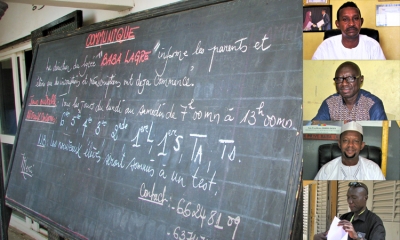 COMMUNIQUE
La direction du lycée "BABA LAGRE" informe les parents et
élèves que les inscriptions et réinscriptions ont déjà commencé.
Tous les jours du lundi au samedi de 7h00mn à 13h00mn.
6e 5e 4e 3e 2nde 1ère L 1ère S, TA, TD.
NB: les nouveaux élèves seront soumis à un test.
Contact: 66248109